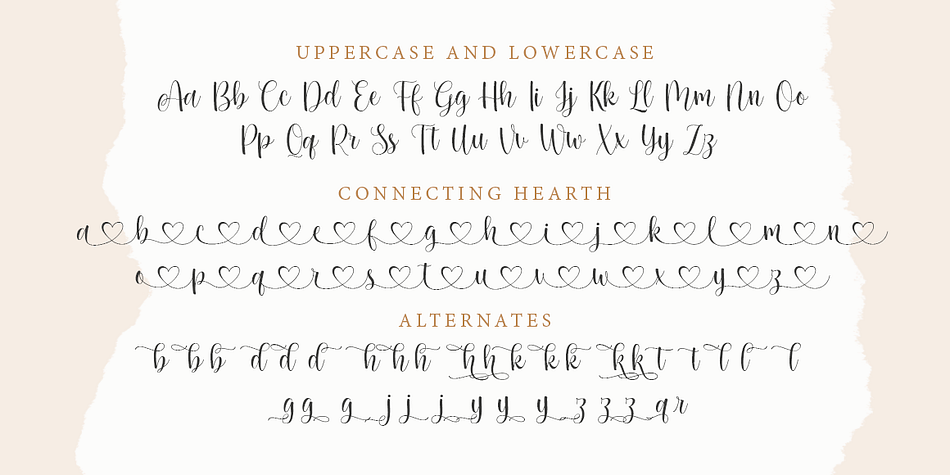 UPPERCASE AND LOWERCASE
Aa Bb Cc Dd Ee Ff Gg Hh Ii Jj Kk Ll Mm Nn Oo
Pp Qq Rr Ss Tt Uu Vv Ww Xx Yy Zz
CONNECTING HEARTH
a b c d e f g h i j k l m n
o p q r s t u v w x y z
ALTERNATES
b b b d d d h h h h h k k k k k t t l l l
g g g j j j y y y z z z q r